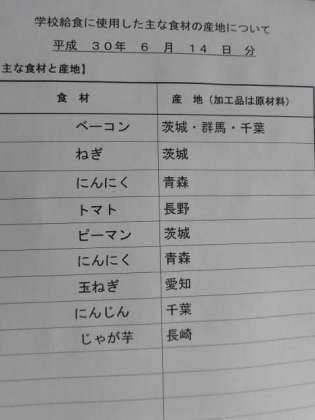 学校給食に使用した主な食材の産地について
平成 30年 6 月 14 日 分
主な食材と産地】
食 材 産 地（加工品は原材料）
ベーコン 茨城・群馬・千葉
ねぎ 茨城
にんにく 青森
トマト 長野
ピーマン 茨城
にんにく 青森
玉ねぎ 愛知
にんじん 千葉
じゃが芋 長崎